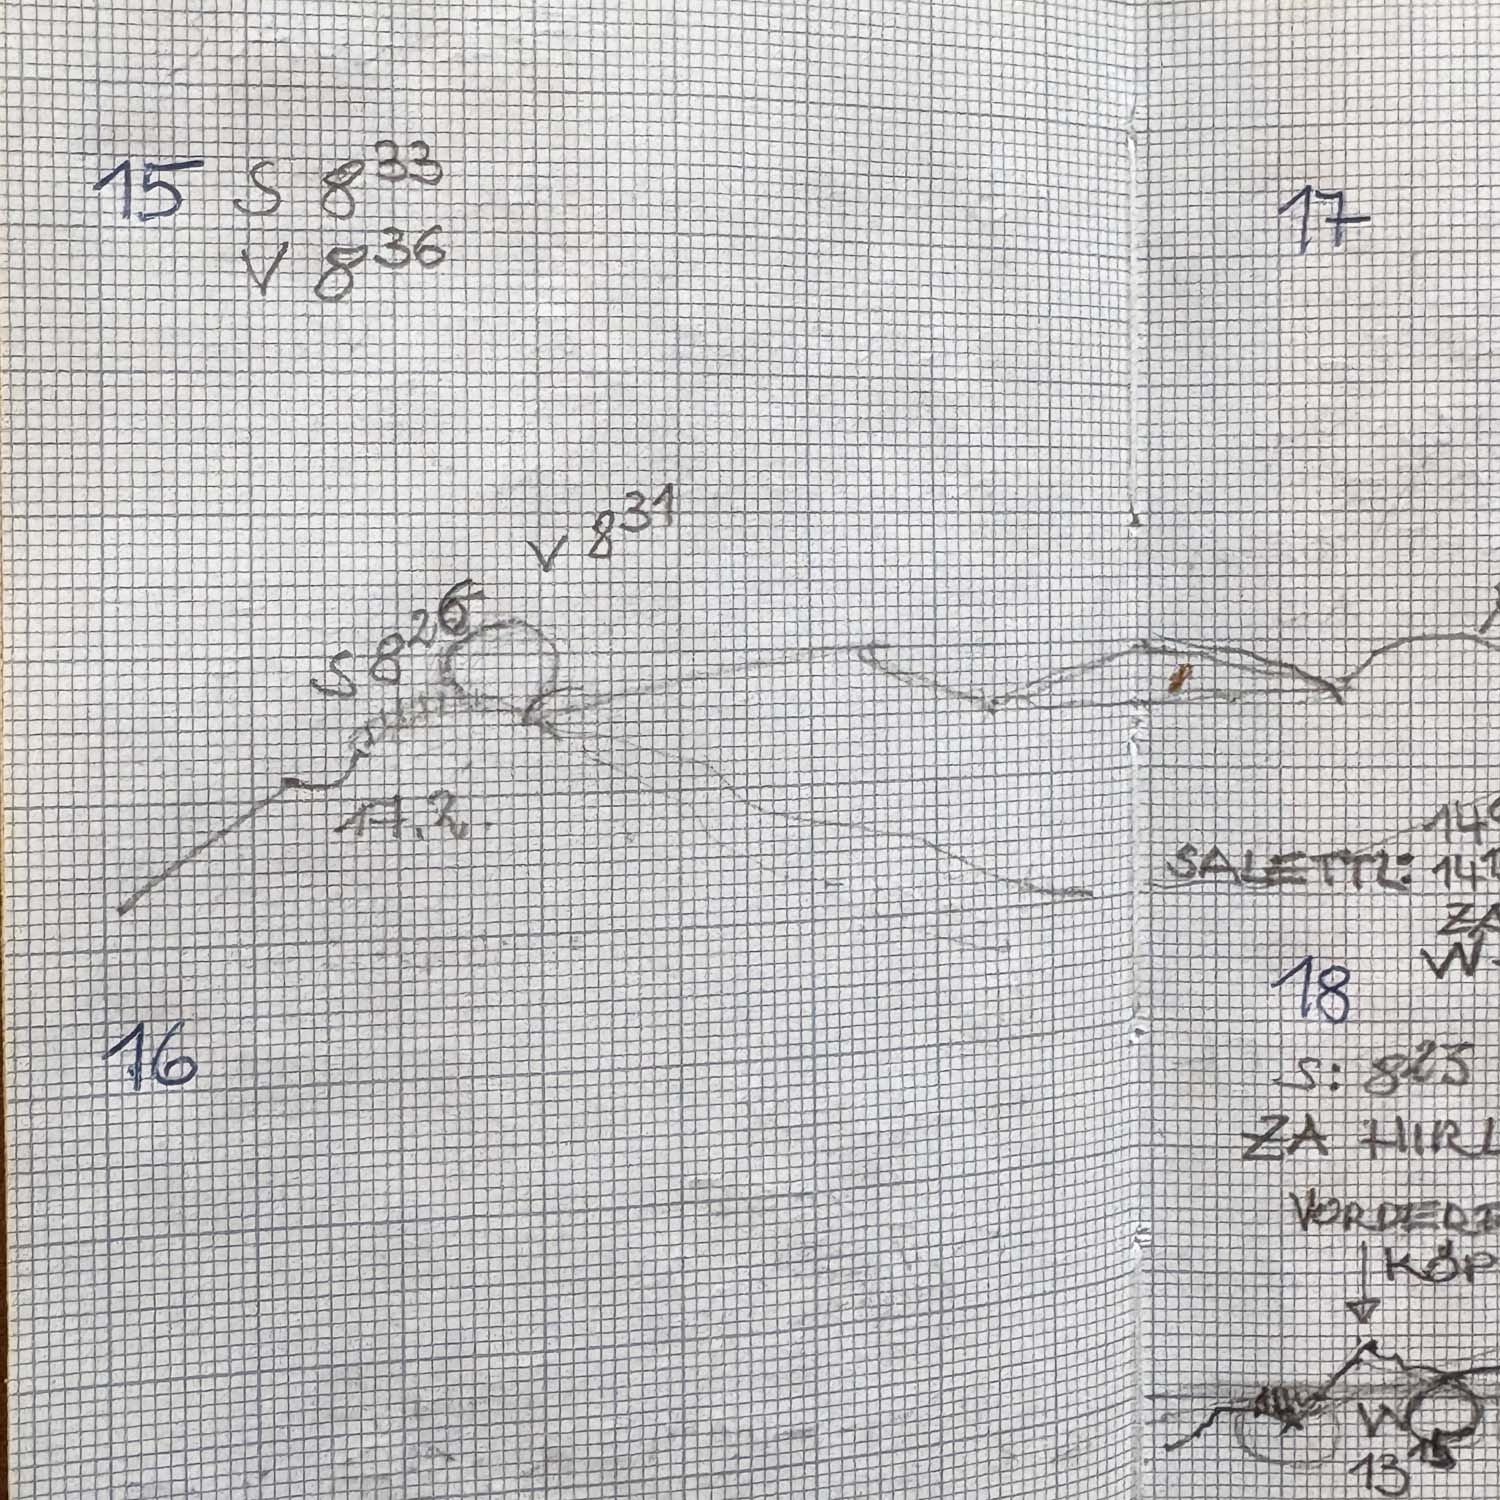 15 S 8³³
V 8³⁶
V 8³¹
S 8²⁶
17.2.
16
17
SALETTL: 14
14
ZA
W
18
S: 8²⁵
ZA HIRL
VORDERE
KÖP
W
13¹⁵